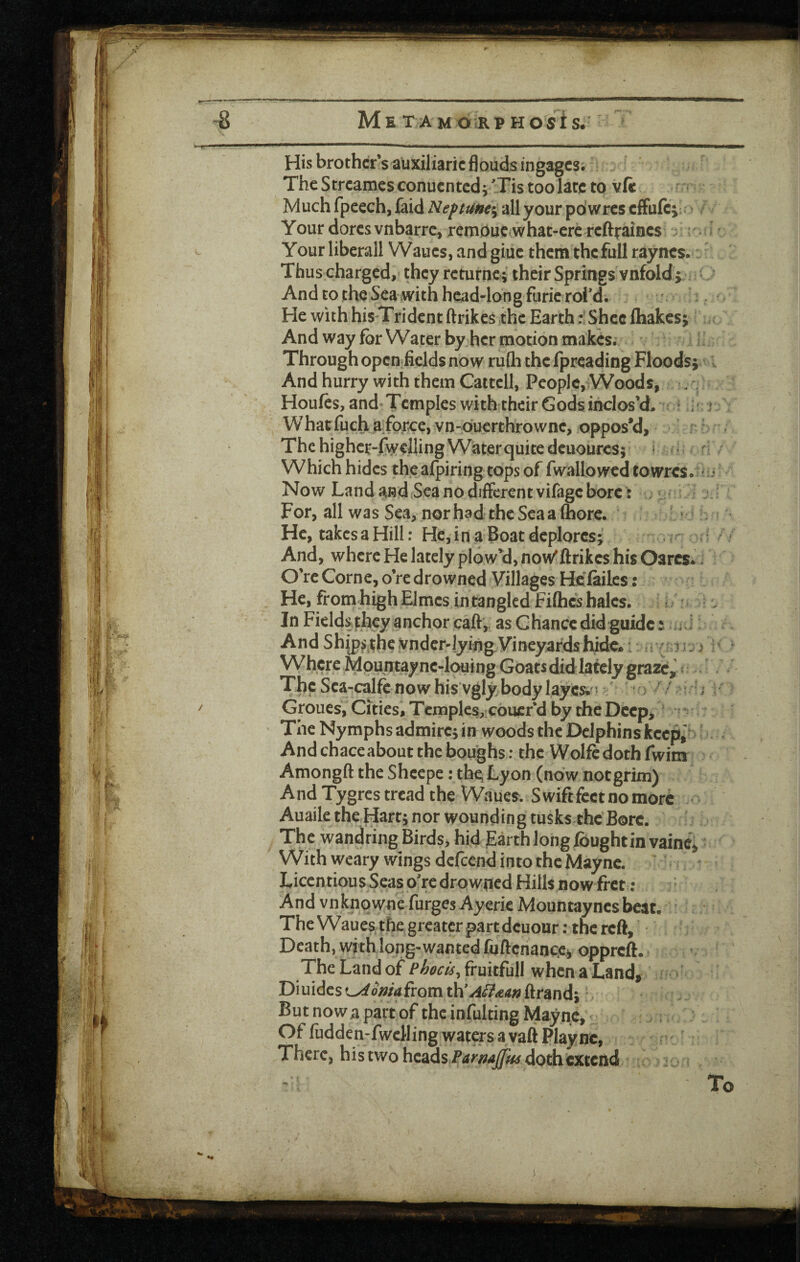 8 METAMORPHOSIS.
His brother's auxiliarie flouds ingages.
The Streames conuented; 'Tis too late to vſe
Much ſpeech, ſaid Neptune; all your powres effuſe;
Your dores vnbarre, remoue what-ere reſtraines
Your liberall Waues, and giue them the full raynes.
Thus charged, they returne; their Springs vnfold;
And to the Sea with head-long furie rol'd.
He with his Trident ſtrikes the Earth: Shee ſhakes;
And way for Water by her motion makes.
Through open fields now ruſh the ſpreading Floods;
And hurry with them Cattell, People, Woods,
Houſes, and Temples with their Gods inclos'd.
What ſuch a force, vn-ouerthrowne, oppos'd,
The higher-ſwelling Water quite deuoures;
Which hides the aſpiring tops of ſwallowed towres.
Now Land and Sea no different viſage bore:
For, all was Sea, nor had the Sea a ſhore.
He, takes a Hill: He, in a Boat deplores;
And, where He lately plow'd, now ſtrikes his Oares.
O're Corne, o're drowned Villages He ſailes:
He, from high Elmes intangled Fiſhes hales.
In Fields they anchor caſt, as Chance did guide:
And Ships the vnder-lying Vineyards hide.
Where Mountayne-louing Goats did lately graze,
The Sea-calfe now his vgly body layes.
Groues, Cities, Temples, couer'd by the Deep,
The Nymphs admire; in woods the Delphins keep,
And chace about the boughs: the Wolfe doth ſwim
Amongſt the Sheepe: the Lyon (now not grim)
And Tygres tread the Waues. Swift feet no more
Auaile the Hart; nor wounding tusks the Bore.
The wandring Birds, hid Earth long ſought in vaine,
With weary wings deſcend into the Mayne.
Licentious Seas o're drowned Hills now fret:
And vnknowne ſurges Ayerie Mountaynes beat.
The Waues the greater part deuour: the reſt,
Death, with long-wanted ſuſtenance, oppreſt.
The Land of Phocis, fruitfull when a Land,
Diuides Aonia from th' Actæan ſtrand;
But now a part of the inſulting Mayne,
Of ſudden-ſwelling waters a vaſt Playne,
There, his two heads Parnaſſus doth extend
To